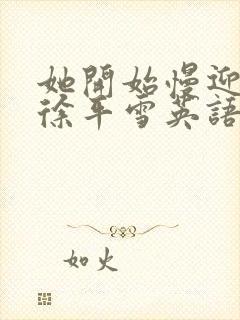 她開始慢迎
徐平雪英語
如火